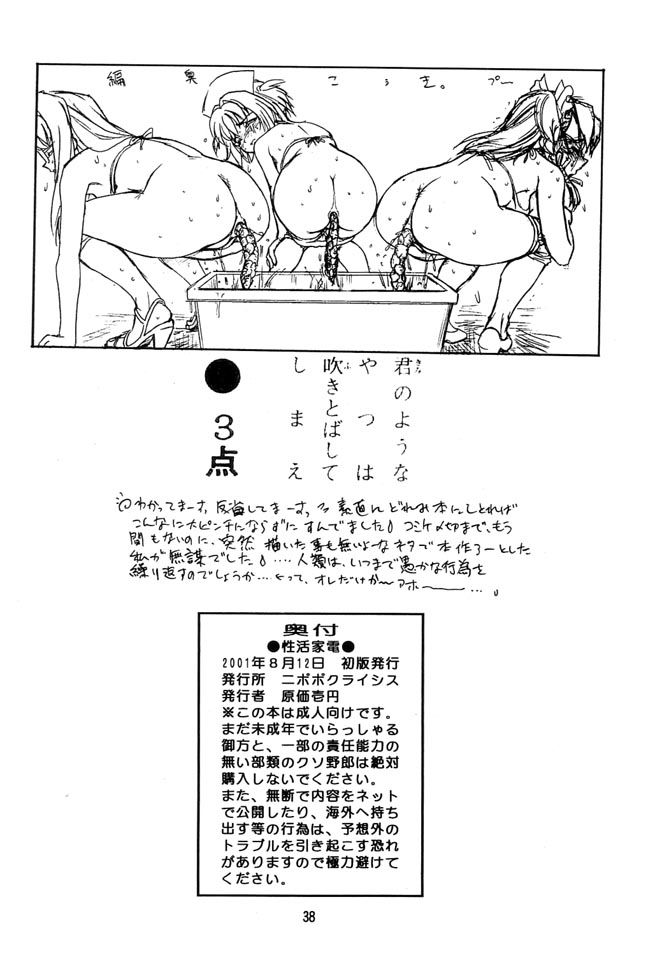 編 奥 こうき。プー
君のような
やつは
吹きとばして
しまえ
●3点
わかってまーす、反省してまーす。素直にどれみ本にしとれば
こんなに大ピンチにならずにすんでました♪コミケ〆切まで、もう
間もないのに、突然 描いた事も無いよーなネタで本作ろーとした
私が無謀でした♪‥‥人類は、いつまで愚かな行為を
繰り返すのでしょうか‥‥って、オレだけかーアホー‥‥。
奥付
●性活家電●
2001年8月12日 初版発行
発行所 ニポポクライシス
発行者 原価壱円
※この本は成人向けです。
まだ未成年でいらっしゃる
御方と、一部の責任能力の
無い部類のクソ野郎は絶対
購入しないでください。
また、無断で内容をネット
で公開したり、海外へ持ち
出す等の行為は、予想外の
トラブルを引き起こす恐れ
がありますので極力避けて
ください。
38